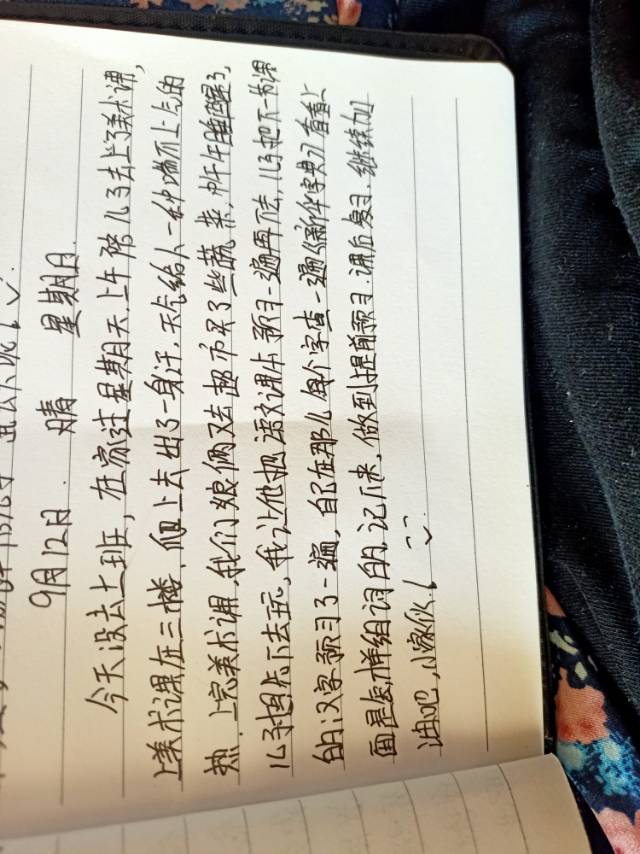 9月12日 晴 星期日.
今天没去上班,在家过星期天.上午陪儿子去上了美术课,
上美术课在三楼,爬上去出了一身汗.天气给人一种喘不上气的
热.上完美术课.我们娘俩又去超市买了些蔬菜.中午午睡醒了.
儿子想先下去玩,我让他把语文课本预习一遍再下去,儿子把下一节课
的汉字预习了一遍,自己在那儿每个字查一遍《新华字典》看看上
面是怎样组词的.记下来,做到提前预习.课后复习.继续加
油吧,小家伙!